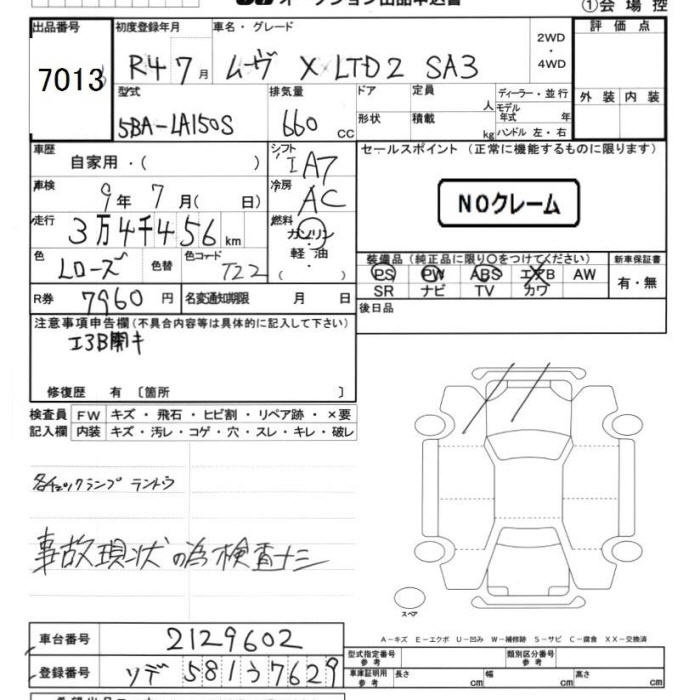 ①会場控
出品番号
7013
初度登録年月
R4 7月
車名・グレード
ムーヴ X LTD2 SA3
2WD
・
4WD
評価点
型式
5BA-LA150S
排気量
660 cc
ドア
形状
定員 人
積載 kg
ディーラー・並行
モデル年式 年
ハンドル 左・右
外装 内装
車歴
自家用・( )
シフト
IA7
冷房
AC
車検
9年 7月( 日)
走行
3万4千456 km
燃料
ガソリン
・
軽油
( )
色
Lローズ
色替
色コード
T22
R券
7960円
名変通知期限 月 日
セールスポイント (正常に機能するものに限ります)
NOクレーム
装備品(純正品に限り○をつけてください)
PS PW ABS エアB AW
SR ナビ TV カワ
新車保証書
有・無
後日品
注意事項申告欄(不具合内容等は具体的に記入して下さい)
エ3B開キ
修復歴 有 〔箇所 〕
検査員 FW キズ・飛石・ヒビ割・リペア跡・×要
記入欄 内装 キズ・汚レ・コゲ・穴・スレ・キレ・破レ
各チェックランプ テントウ
事故現状の為検査ナシ
スペア
A-キズ E-エクボ U-凹み W-補修跡 S-サビ C-腐食 XX-交換済
車台番号
2129602
登録番号
ソデ 581う7629
型式指定番号
参考
類別区分番号
参考
車庫証明用
参考
長さ cm
幅 cm
高さ cm